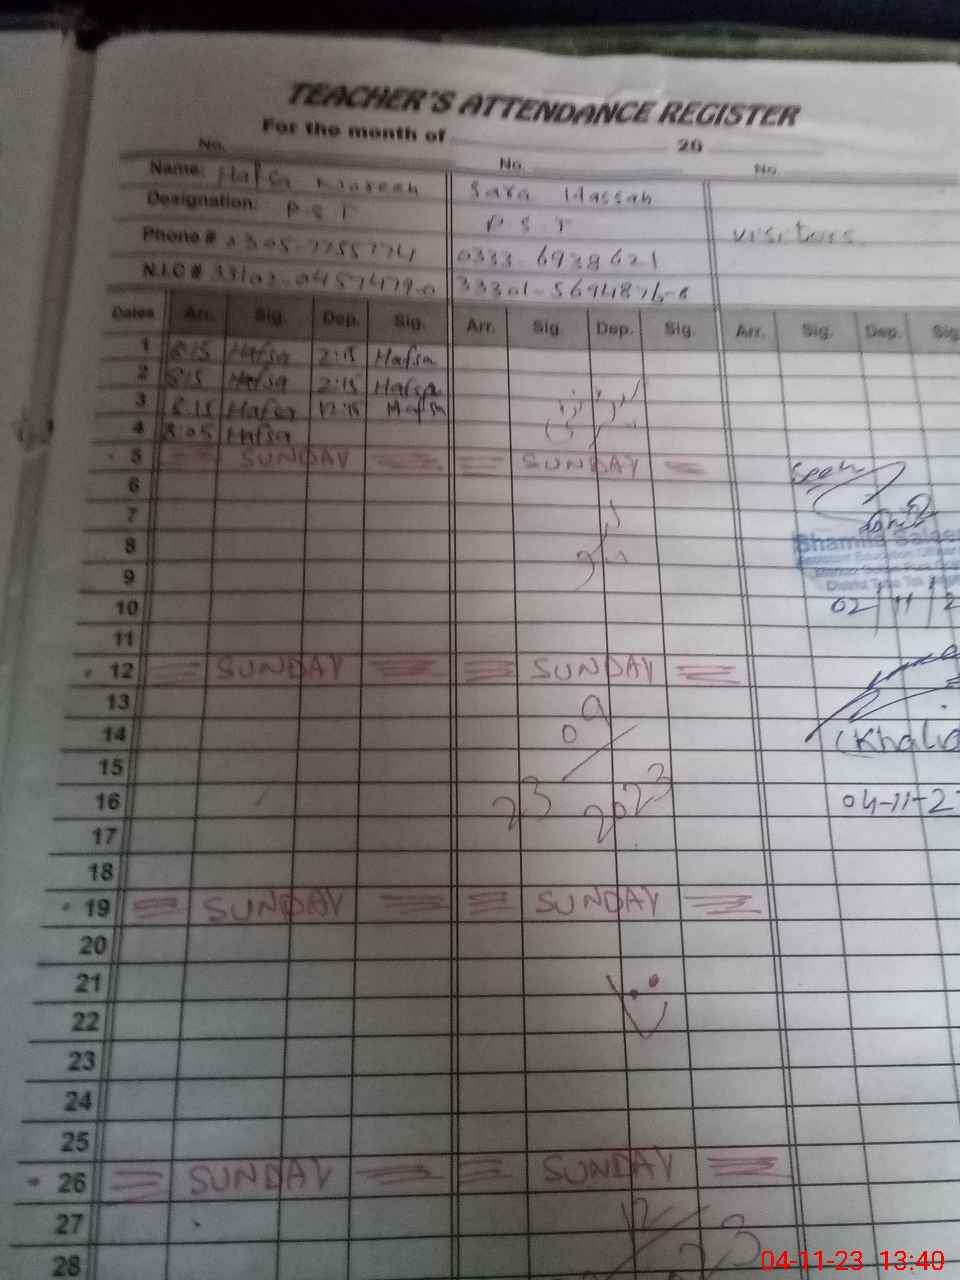 TEACHER'S ATTENDANCE REGISTER
For the month of 20
No. No. No.
Name: Hafsa Sara Hassan
Designation: P.S.T P.S.T visitors
Phone # 0305-7755774 0333-6938621
N.I.C #
Dates Arr. Sig. Dep. Sig. Arr. Sig. Dep. Sig. Arr. Sig. Dep. Sig.
1 8:15 Hafsa 2:15 Hafsa
2 8:15 Hafsa 2:15 Hafsa
3 8:15 Hafsa 12:15 Hafsa
4 8:05 Hafsa
5 SUNDAY SUNDAY
6 Seen
7
8 Shamila
9
10 02/11/2
11
12 SUNDAY SUNDAY
13 09
14 (Khalid
15
16 23 2023 04-11-2
17
18
19 SUNDAY SUNDAY
20
21
22
23
24
25
26 SUNDAY SUNDAY
27
28
04-11-23 13:40